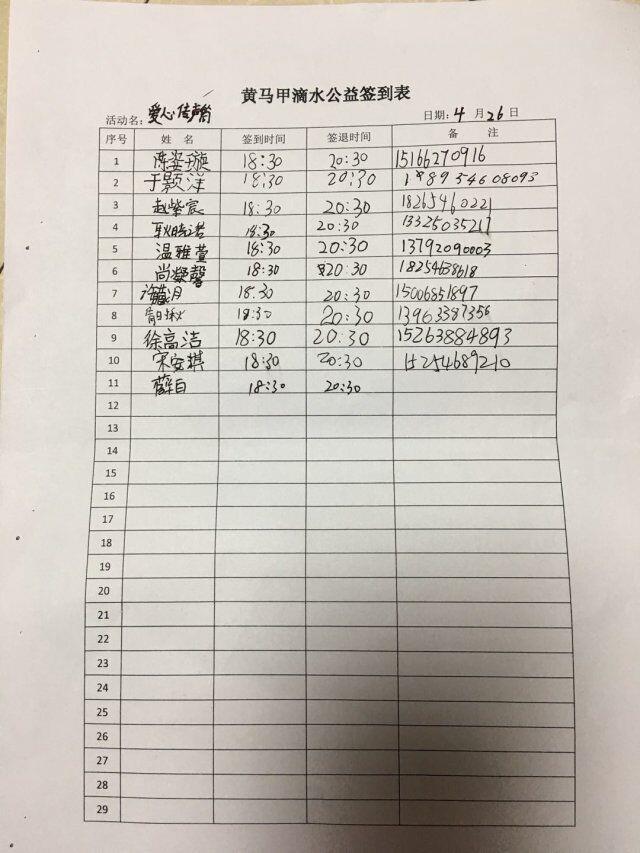 黄马甲滴水公益签到表
活动名: 爱心传声筒 日期: 4 月 26 日
序号 姓 名 签到时间 签退时间 备 注
1 陈姿璇 18:30 20:30 15166270916
2 于颢洋 18:30 20:30 18954608093
3 赵紫宸 18:30 20:30 18265460221
4 耿晓诺 18:30 20:30 13325035217
5 温雅萱 18:30 20:30 13792090003
6 尚凝馨 18:30 20:30 18254658618
7 18:30 20:30 15006551897
8 18:30 20:30 13963387356
9 徐高洁 18:30 20:30 15263884893
10 宋安琪 18:30 20:30 15254689210
11 18:30 20:30
12
13
14
15
16
17
18
19
20
21
22
23
24
25
26
27
28
29